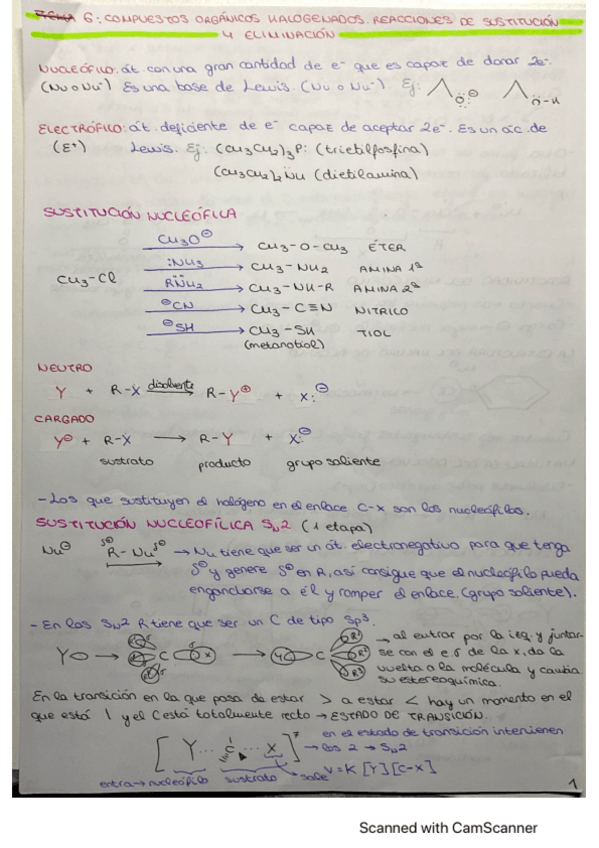 TEMA 6: COMPUESTOS ORGÁNICOS HALOGENADOS. REACCIONES DE SUSTITUCIÓN
Y ELIMINACIÓN
NUCLEÓFILO: át. con una gran cantidad de e⁻ que es capaz de donar 2e⁻.
(Nu o Nu⁻) Es una base de Lewis. (Nu o Nu⁻). Ej:
ELECTRÓFILO: át. deficiente de e⁻ capaz de aceptar 2e⁻. Es un ác. de
(E⁺) Lewis. Ej: (CH₃CH₂)₃P: (trietilfosfina)
(CH₃CH₂)₂NH (dietilamina)
SUSTITUCIÓN NUCLEÓFICA
CH₃O⊖ CH₃-O-CH₃ ÉTER
:NH₃ CH₃-NH₂ AMINA 1ª
CH₃-Cl RNH₂ CH₃-NH-R AMINA 2ª
⊖CN CH₃-C≡N NITRILO
⊖SH CH₃-SH TIOL
(metanotiol)
NEUTRO
Y + R-X disolvente → R-Y⊕ + X:⊖
CARGADO
Y⊖ + R-X → R-Y + X:⊖
sustrato producto grupo saliente
- Los que sustituyen el halógeno en el enlace C-X son los nucleófilos.
SUSTITUCIÓN NUCLEOFÍLICA SN2 (1 etapa)
Nu⊖ δ⊕R-Nuδ⊖ → Nu tiene que ser un át. electronegativo para que tenga
δ⊖ y genere δ⊕ en R, así consigue que el nucleófilo pueda
engancharse a él y romper el enlace. (grupo saliente).
- En las SN2 R tiene que ser un C de tipo sp³.
Y → C X → Y C R¹ R² R³ → al entrar por la izq. y juntar-
se con el e.s de la x, da la
vuelta a la molécula y cambia
su estereoquímica.
En la transición en la que pasa de estar > a estar < hay un momento en el
que está | y el C está totalmente recto → ESTADO DE TRANSICIÓN.
[Y...C...X]⁺ → en el estado de transición intervienen
los 2 → SN2
entra → nucleófilo sustrato sale V=K [Y][C-X]
1
Scanned with CamScanner